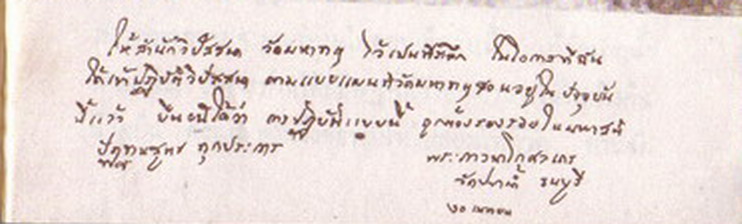 ให้สำนักวิปัสสนา วัดมหาธาตุ ไว้เป็นที่ระลึก ในโอกาสที่ฉัน
ได้เข้าปฏิบัติวิปัสสนา ตามแบบแผนที่วัดมหาธาตุสอนอยู่ในปัจจุบัน
นี้แล้ว ยืนยันได้ว่า การปฏิบัติแบบนี้ ถูกต้องร่องรอยในมหาสติ
ปัฏฐานสูตร ทุกประการ
พระภาวนาโกศลเถร
วัดปากน้ำ ธนบุรี